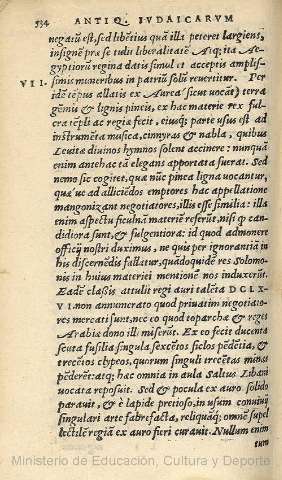 534 ANTIQ. IVDAICARVM
negatū est, sed libētius quā illa peteret largiens,
insignē præ se tulit liberalitatē. Atq; ita Ae-
gyptiorū regina datis simul et acceptis amplis-
VII. simis muneribus in patriū solū reuertitur. Per
idē tēpus allatis ex Aurea (sicut vocāt) terra
gēmis & lignis pineis, ex hac materie rex ful-
cra tēpli ac regiæ fecit, eiusq; parte vsus est ad
instrumēta musica, cinnyras & nabla, quibus
Leuitæ diuinos hymnos solent accinere: nunquā
enim antehac tā elegans apportata fuerat. Sed
nemo sic cogitet, qua nūc pinea ligna vocantur,
quæ ve ad alliciēdos emptores hac appellatione
mangonizant negotiatores, illis esse similia: illa
enim aspectu ficulnā materiē referūt, nisi q can-
didiora sunt, & fulgentiora: id quod admonere
officij nostri duximus, ne quis per ignorantiā in
his discernēdis fallatur, quādoquidē res Solomo-
nis in huius materiei mentionē nos induxerūt.
Eadē classis attulit regi auri talēta DCLX-
VI. non annumerato quod priuatim negotiato-
res mercati sunt, nec eo quod toparchæ & reges
Arabiæ dono illi miserūt. Ex eo fecit ducenta
scuta fusilia singula sexcētos siclos pēdētia, &
trecētos clypeos, quorum singuli trecētas minas
pēderēt: atq; hac omnia in aula Saltus Libani
vocata reposuit. Sed & pocula ex auro solido
parauit, & è lapide precioso, in vsum conuiuij
singulari arte fabrefacta, reliquāq; omnē supel
lectilē regiā ex auro fieri curauit. Nullum enim
tum
Ministerio de Educación, Cultura y Deporte